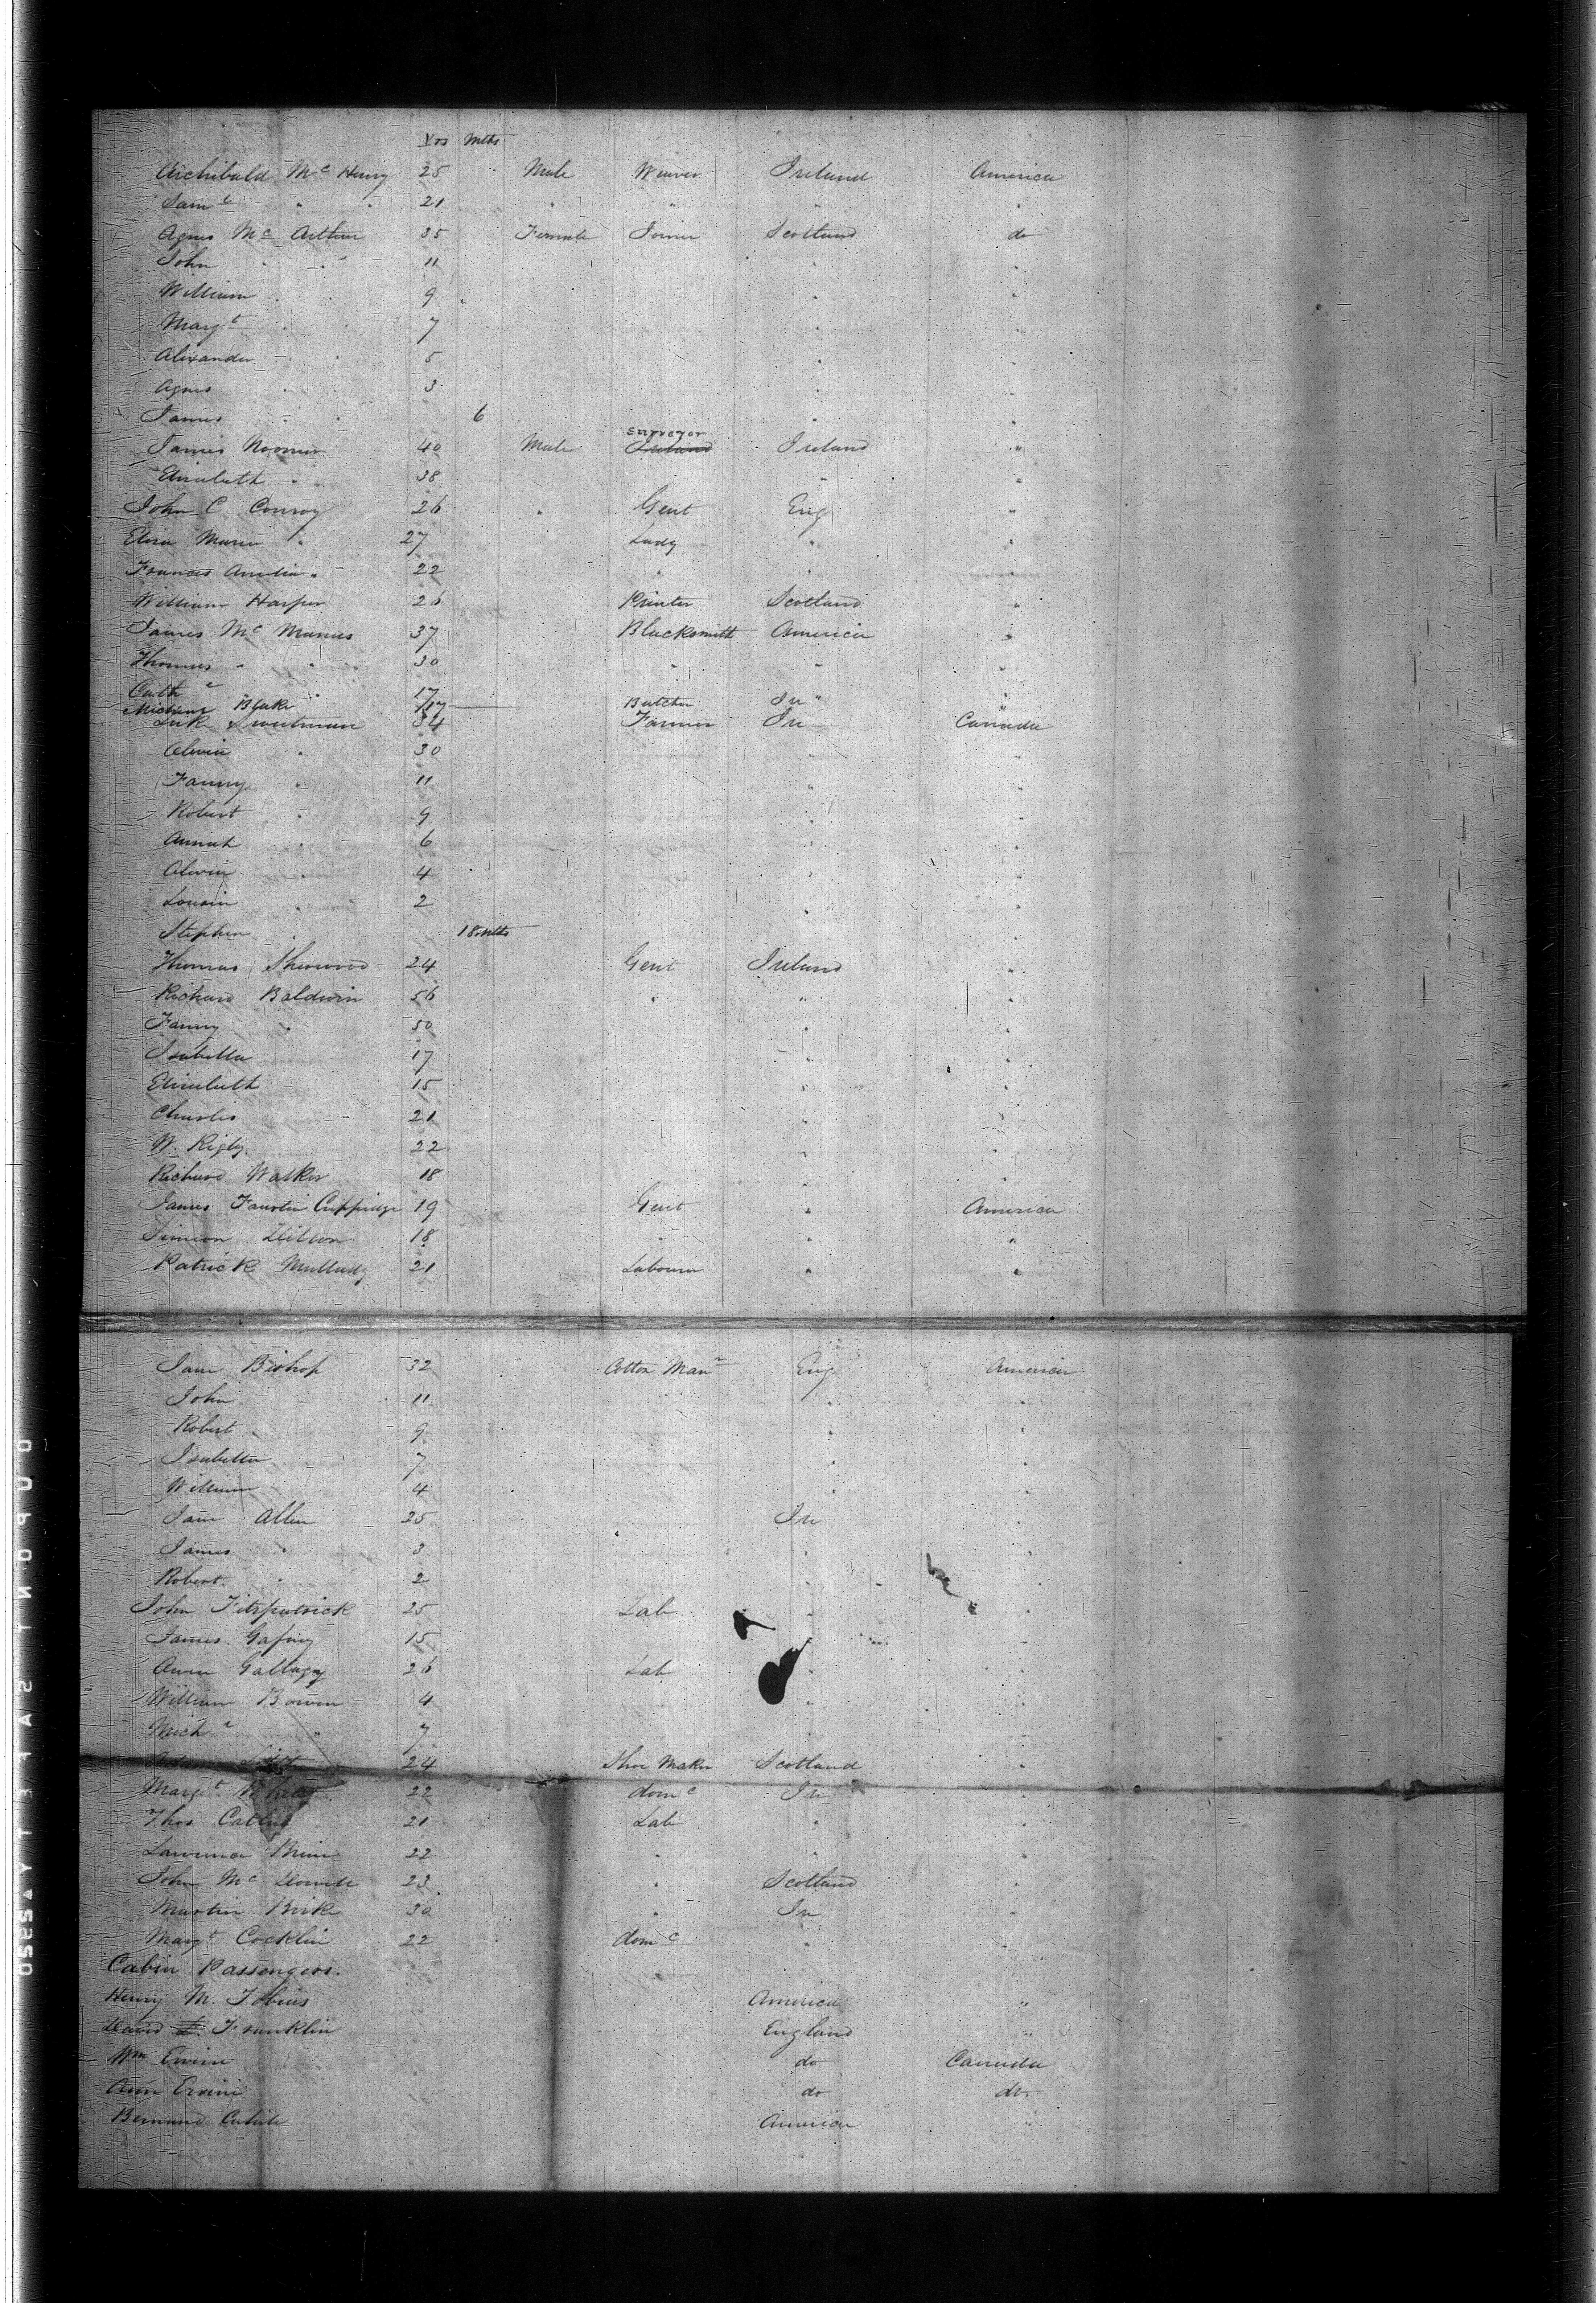 Yrs Mths
Archibald Mc Henry 25 Male Weaver Ireland America
Saml " " 21 " " " "
Agnes Mc Arthur 35 Female Joiner Scotland do
John " " 11 " "
William " " 9 " "
Margt " " 7 " "
Alexander " " 5 " "
Agnes " 3 " "
James " " 6 " "
surveyor
James Noomer 40 Male Ireland Ireland "
Elizabeth " 38 " "
John C. Conroy 26 " Gent Eng "
Eliza Maria " 27 Lady " "
Frances Amelia " 22 " " "
William Harper 26 Printer Scotland "
James Mc Manus 37 Blacksmith America "
Thomas " " 30 " " "
Cathe " 17 " "
Michael Blake 17 Butcher Ir "
Luk Sweetman 34 Farmer Ir Canada
Alivia " 30 " "
Fanny " 11 " "
Robert " 9 " "
Annah " 6 " "
Alivia " 4 " "
Louisa " 2 " "
Stephen " 18 Mths " "
Thomas Sherwood 24 Gent Ireland "
Richard Baldwin 56 " " "
Fanny " 50 " "
Isabella 17 " "
Elizabeth 15 " "
Charles 21 " "
W. Rigby 22 " "
Richard Walker 18 " "
James Faustin Cuppidge 19 Gent " America
Simeon Dillon 18 " " "
Patrick Mullady 21 Labourer " "
Jane Bishop 32 Cotton Manr Eng America
John 11 " "
Robert " 9 " "
Isabella 7 " "
William 4 " "
Jane Allen 25 Ir "
James " 3 " "
Robert " 2 " "
John Fitzpatrick 25 Lab " "
James Gafney 15 " "
Owen Gallagy 26 Lab " "
William Bowen 4 " "
Michl " 7 " "
24 Shoe Maker Scotland "
Margt White 22 domc Ir "
Thos 21 Lab " "
Lawrence Brine 22 " " "
John Mc Dowell 23 " Scotland "
Martin Birk 30 " Ir "
Margt Cocklin 22 domc "
Cabin Passengers.
Henry M. Tobias America "
David L. Franklin England "
Wm Ervin do Canada
Ann Ervin do do
Bernard America "